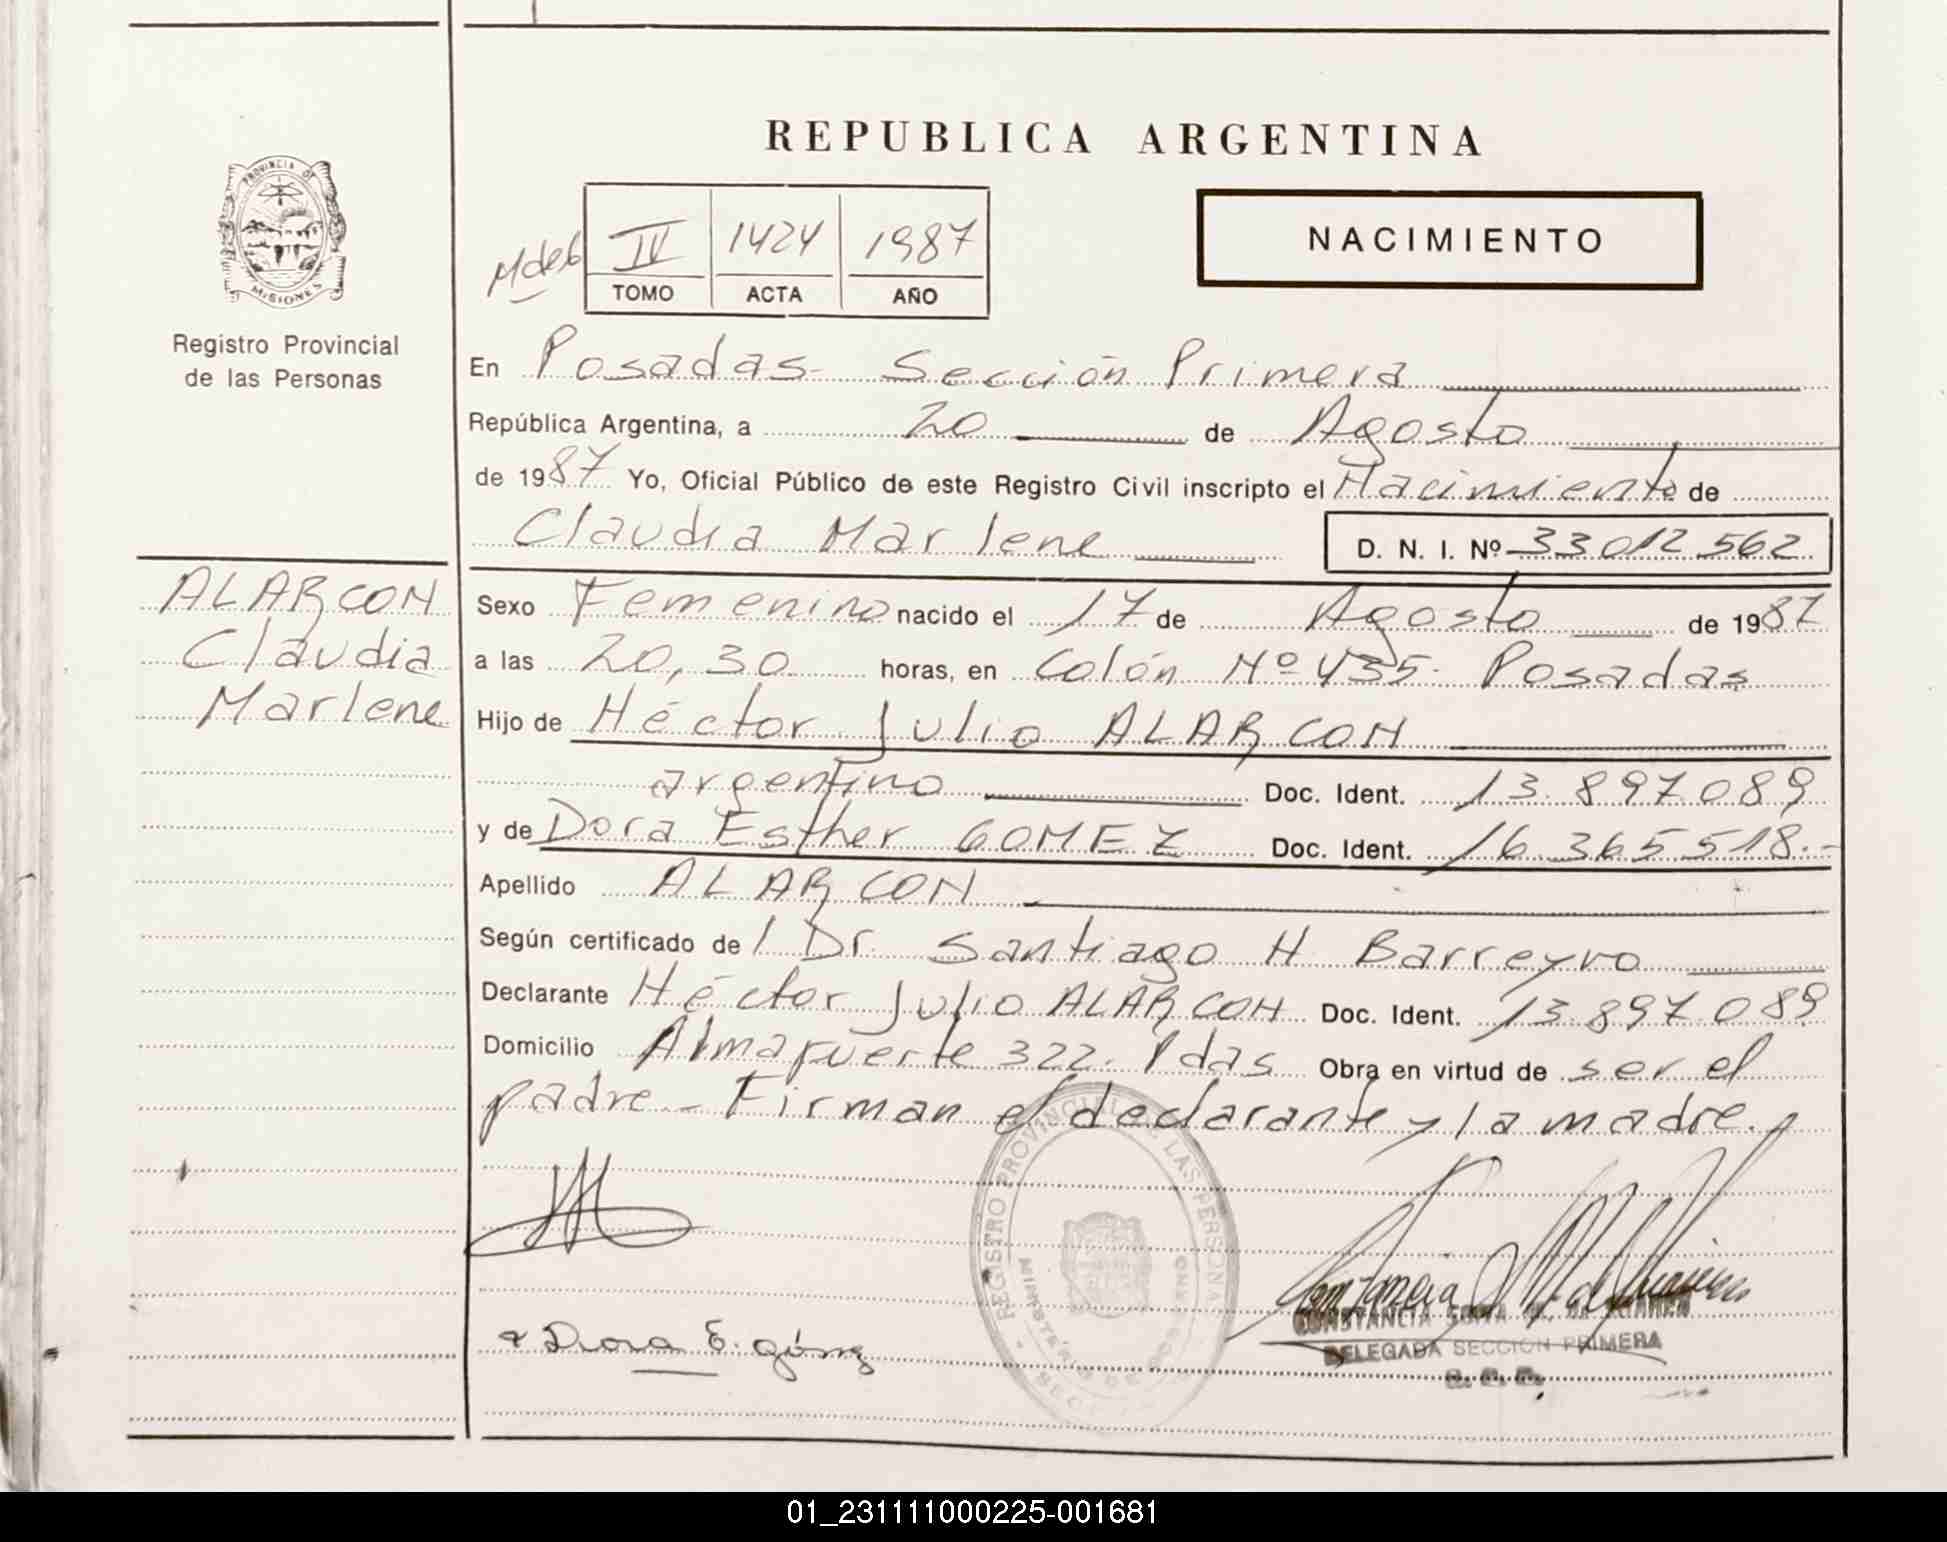 REPUBLICA ARGENTINA
PROVINCIA DE
MISIONES
Registro Provincial
de las Personas
IV 1424 1987
TOMO ACTA AÑO
NACIMIENTO
En Posadas- Sección Primera
República Argentina, a 20 de Agosto
de 1987 Yo, Oficial Público de este Registro Civil inscripto el Nacimiento de
Claudia Marlene D. N. I. Nº 33012562
ALARCON
Claudia
Marlene
Sexo Femenino nacido el 17 de Agosto de 1987
a las 20,30 horas, en Colón Nº 435- Posadas
Hijo de Héctor Julio ALARCON
argentino Doc. Ident. 13.897.089
y de Dora Esther GOMEZ Doc. Ident. 16.365.518.-
Apellido ALARCON
Según certificado de / Dr. Santiago H Barreyro
Declarante Héctor Julio ALARCON Doc. Ident. 13.897.089
Domicilio Almafuerte 322- Pdas Obra en virtud de ser el
padre - Firman el declarante y la madre.
REGISTRO PROVINCIAL DE LAS PERSONAS
MINISTERIO DE GOBIERNO
Dora E. Gómez
CONSTANCIA
DELEGADA SECCION PRIMERA
01_231111000225-001681